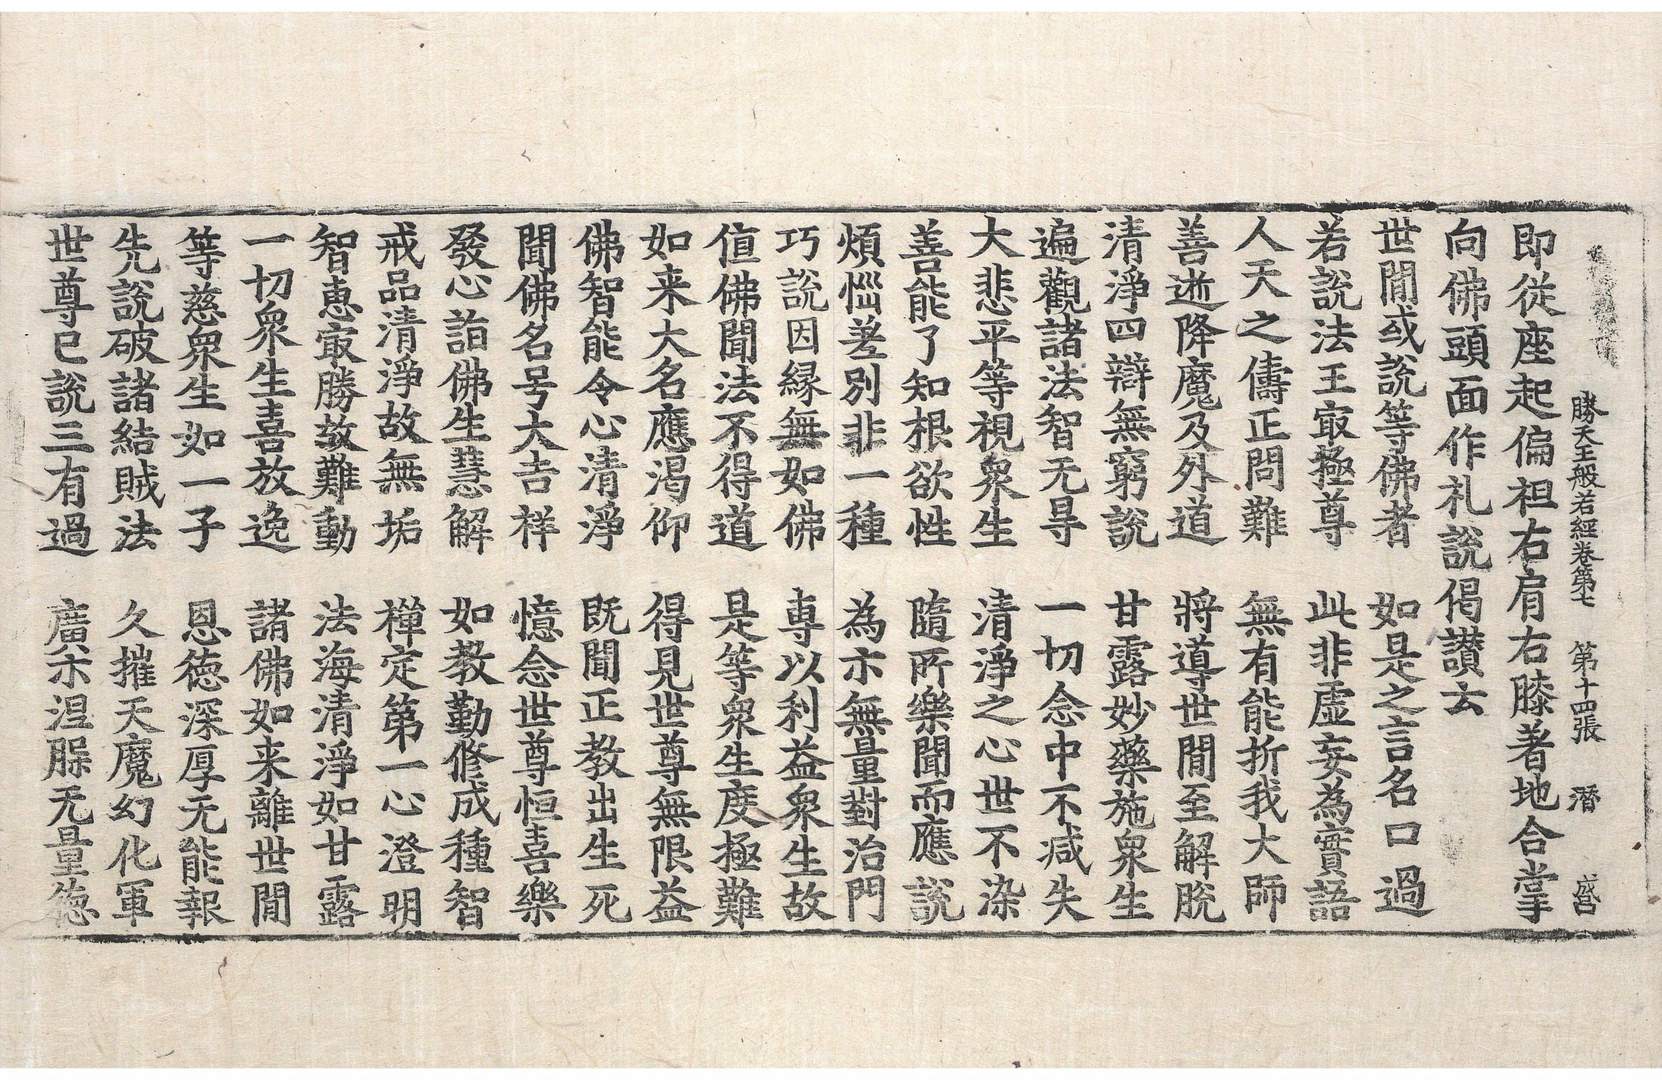 勝天王般若經卷第七 第十四張 潛
即從座起偏袒右肩右膝著地合掌
向佛頭面作礼說偈讃云
世間或說等佛者 如是之言名口過
若說法王㝡極尊 此非虛妄為實語
人天之儔正問難 無有能折我大師
善逝降魔及外道 將導世間至解脫
清淨四辯無窮說 甘露妙藥施衆生
遍觀諸法智无㝵 一切念中不减失
大悲平等視衆生 清淨之心世不染
善能了知根欲性 隨所樂聞而應說
煩惱差別非一種 為尓無量對治門
巧說因縁無如佛 專以利益衆生故
值佛聞法不得道 是等衆生度極難
如来大名應渴仰 得見世尊無限益
佛智能令心清淨 既聞正教出生死
聞佛名号大吉祥 憶念世尊恒喜樂
發心詣佛生慧解 如教勤修成種智
戒品清淨故無垢 禪定第一心澄明
智恵㝡勝故難動 法海清淨如甘露
一切衆生喜放逸 諸佛如来離世間
等慈衆生如一子 恩德深厚无能報
先說破諸結賊法 久摧天魔幻化軍
世尊已說三有過 廣示涅槃无量德